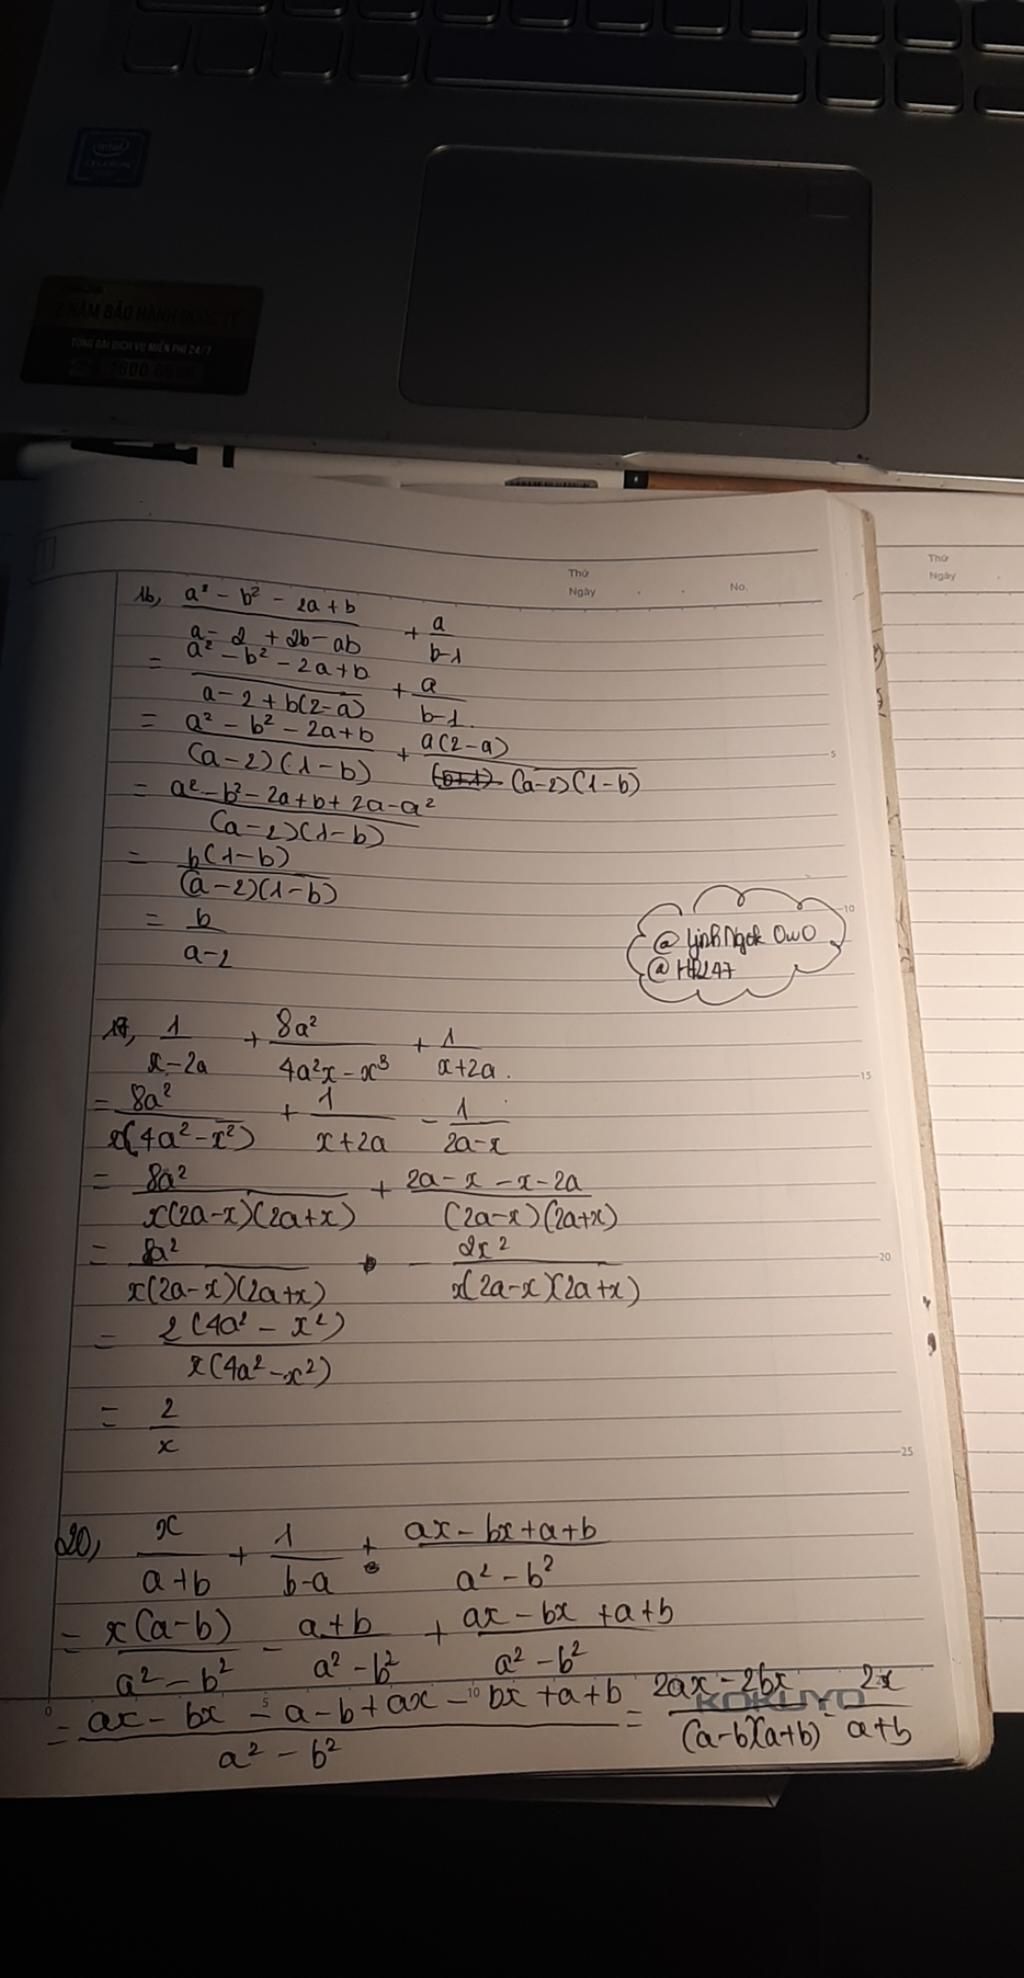 intel
CELERON
2 NĂM BẢO HÀNH QUỐC TẾ
TỔNG ĐÀI DỊCH VỤ MIỄN PHÍ 24/7
Thứ
Ngày
No.
Thứ
Ngày
16, (a² - b² - 2a + b)/(a - 2 + 2b - ab) + a/(b-1)
= (a² - b² - 2a + b)/(a - 2 + b(2-a)) + a/(b-1).
= (a² - b² - 2a + b)/((a-2)(1-b)) + a(2-a)/((a-2)(1-b))
= (a² - b² - 2a + b + 2a - a²)/((a-2)(1-b))
= b(1-b)/((a-2)(1-b))
= b/(a-2)
@ LinhNgok OwO
17, 1/(x-2a) + 8a²/(4a²x - x³) + 1/(x+2a).
= 8a²/(x(4a² - x²)) + 1/(x+2a) - 1/(2a-x)
= 8a²/(x(2a-x)(2a+x)) + (2a - x - x - 2a)/((2a-x)(2a+x))
= 8a²/(x(2a-x)(2a+x)) - 2x²/(x(2a-x)(2a+x))
= 2(4a² - x²)/(x(4a² - x²))
= 2/x
20, x/(a+b) + 1/(b-a) + (ax - bx + a + b)/(a² - b²)
= x(a-b)/(a² - b²) - (a+b)/(a² - b²) + (ax - bx + a + b)/(a² - b²)
= (ax - bx - a - b + ax - bx + a + b)/(a² - b²) = (2ax - 2bx)/((a-b)(a+b)) = 2x/(a+b)
KOKUYO
5
10
15
20
25
0
5
10